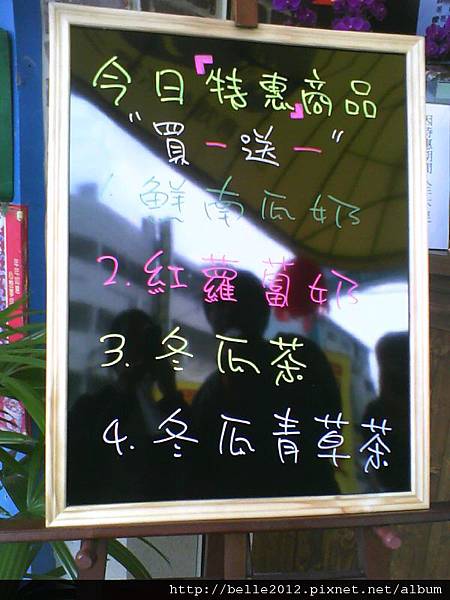 今日『特惠』商品
"買一送一"
1. 鮮南瓜奶
2. 紅蘿蔔奶
3. 冬瓜茶
4. 冬瓜青草茶
http://belle2012.pixnet.net/album